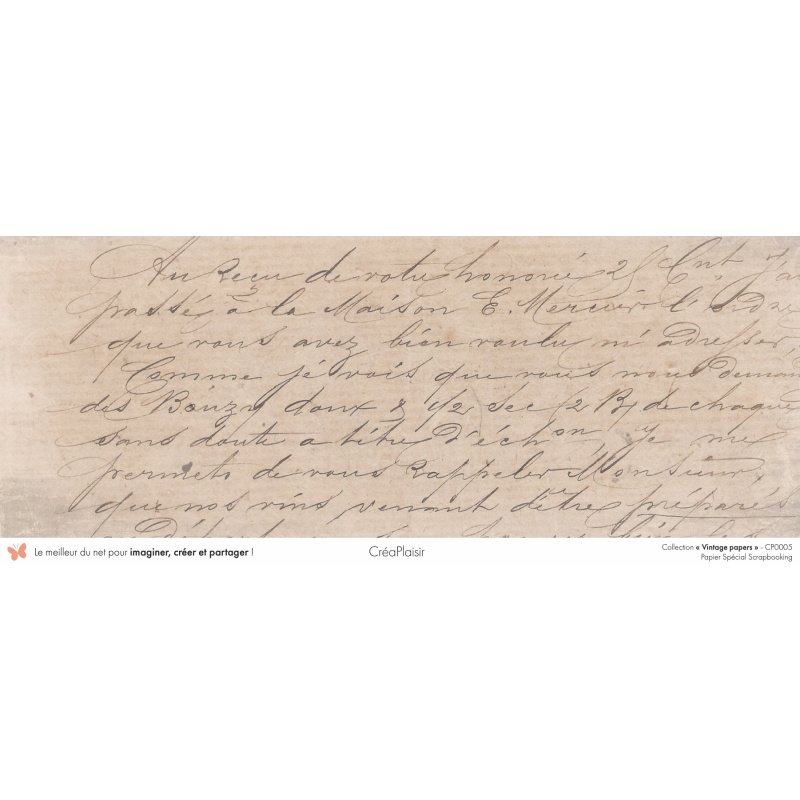 Au Recu de votre honorée 25 Cnt J'ai
passé à la Maison E. Mercier l'ordre
que vous avez bien voulu m'adresser,
Comme je vois que vous nous deman
des Bouzy doux & 1/2 sec (2 B) de chaque
sans doute a titre D'échon, je me
permets de vous Rappeler Monsieur,
que nos vins venant d'être préparés
Le meilleur du net pour imaginer, créer et partager !
CréaPlaisir
Collection « Vintage papers » - CP0005
Papier Spécial Scrapbooking